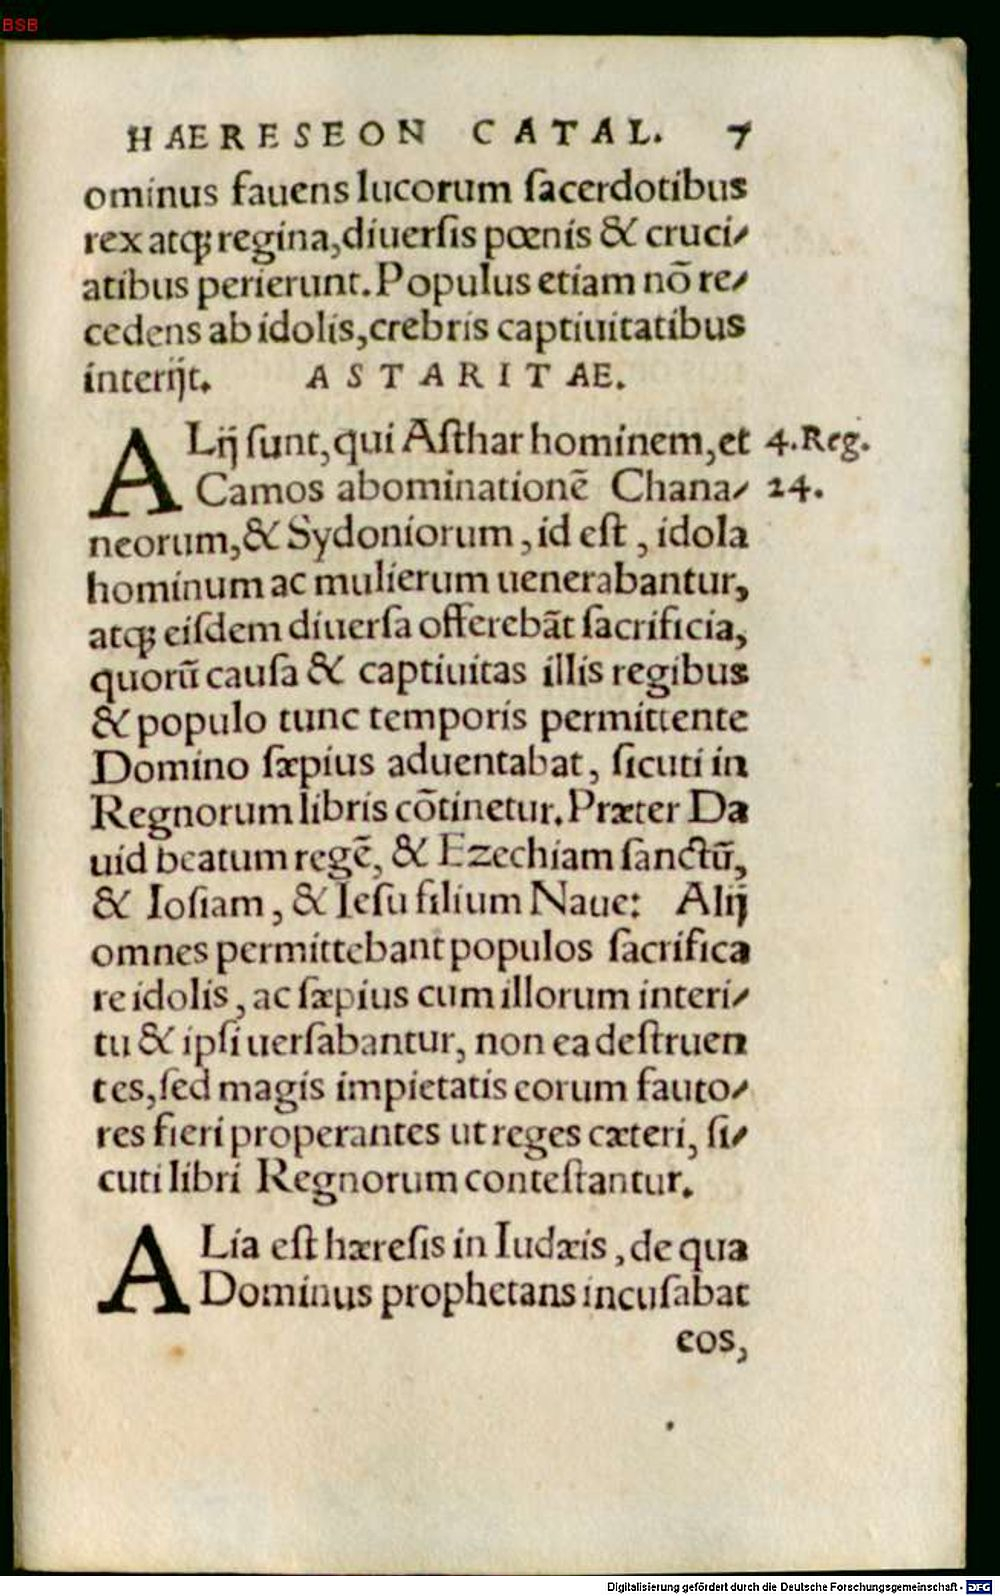 BSB
HAERESEON CATAL. 7
ominus fauens lucorum ſacerdotibus
rex atq; regina, diuerſis pœnis & cruci⸗
atibus perierunt. Populus etiam nō re⸗
cedens ab idolis, crebris captiuitatibus
interijt. ASTARITAE.
ALij ſunt, qui Aſthar hominem, et 4. Reg.
Camos abominationē Chana⸗ 24.
neorum, & Sydoniorum, id eſt, idola
hominum ac mulierum uenerabantur,
atq; eiſdem diuerſa offerebāt ſacrificia,
quorū cauſa & captiuitas illis regibus
& populo tunc temporis permittente
Domino ſæpius aduentabat, ſicuti in
Regnorum libris cōtinetur. Præter Da
uid beatum regē, & Ezechiam ſanctū,
& Ioſiam, & Ieſu filium Naue: Alij
omnes permittebant populos ſacrifica
re idolis, ac ſæpius cum illorum interi⸗
tu & ipſi uerſabantur, non ea deſtruen
tes, ſed magis impietatis eorum fauto⸗
res fieri properantes ut reges cæteri, ſi⸗
cuti libri Regnorum conteſtantur.
ALia eſt hæreſis in Iudæis, de qua
Dominus prophetans incuſabat
eos,
Digitalisierung gefördert durch die Deutsche Forschungsgemeinschaft - DFG